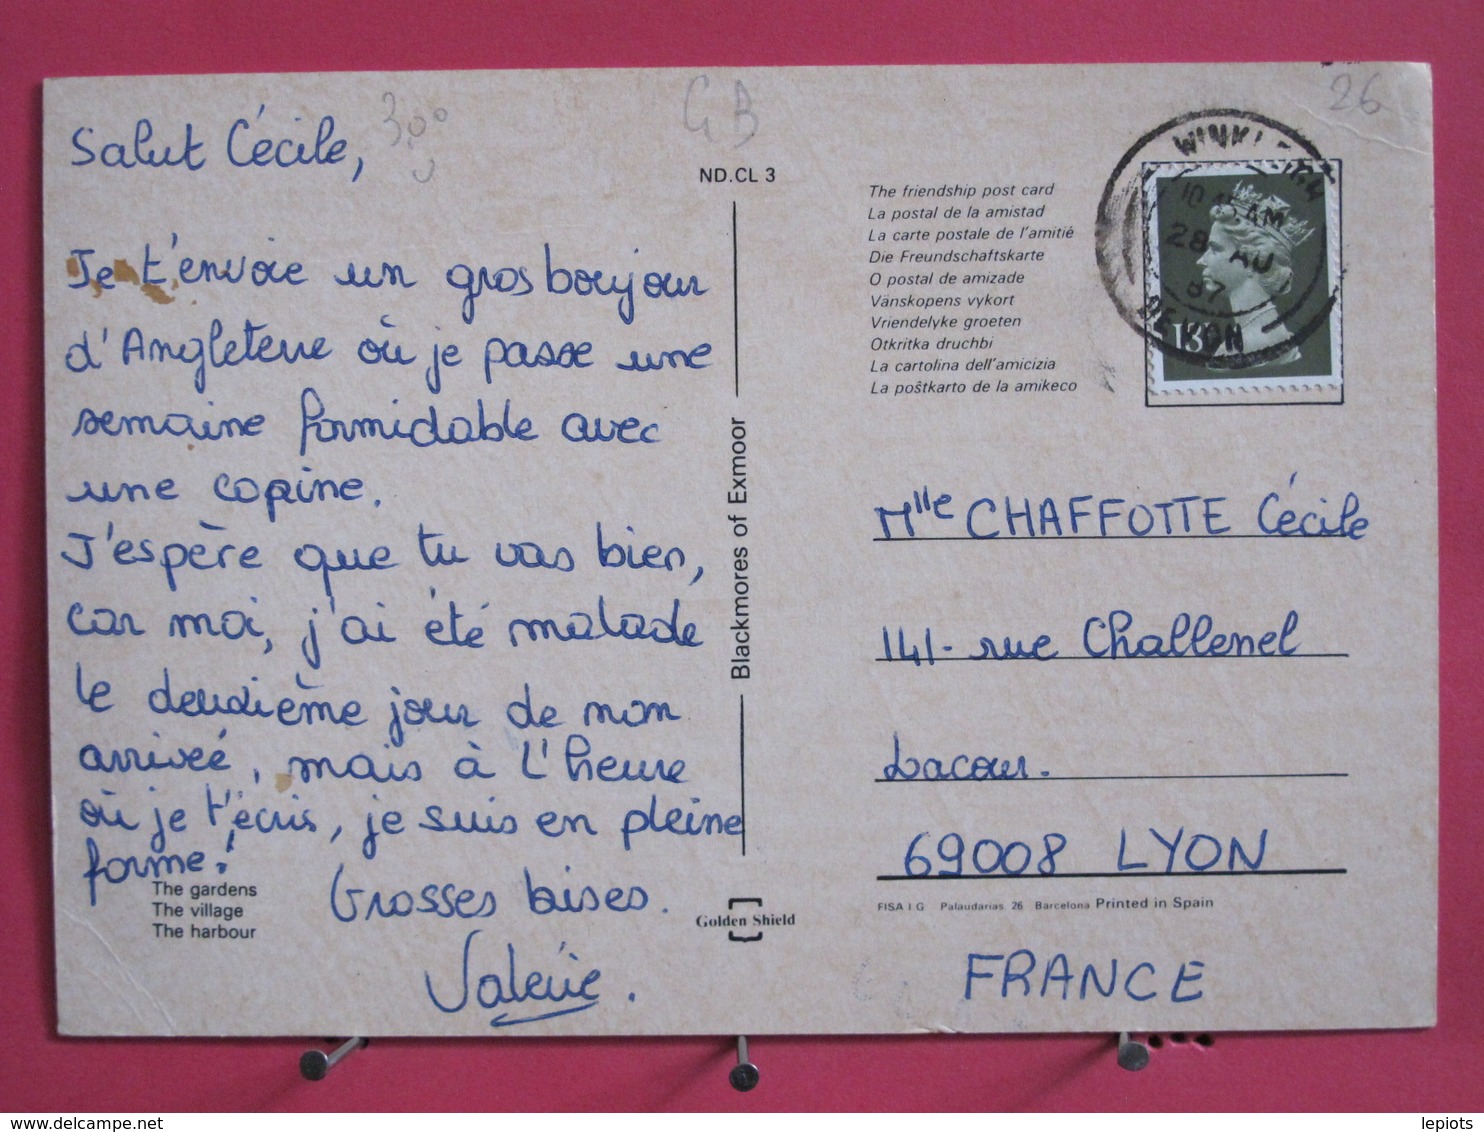 26
GB
Salut Cécile,
3,00
Je t'envoie un gros boujour
d'Angleterre où je passe une
semaine formidable avec
une copine.
J'espère que tu vas bien,
car moi, j'ai été malade
le deuxième jour de mon
arrivée, mais à l'heure
où je t'écris, je suis en pleine
forme!
Grosses bises.
Valérie.
The gardens
The village
The harbour
ND.CL 3
Blackmores of Exmoor
Golden Shield
The friendship post card
La postal de la amistad
La carte postale de l'amitié
Die Freundschaftskarte
O postal de amizade
Vänskopens vykort
Vriendelyke groeten
Otkritka druchbi
La cartolina dell'amicizia
La poŝtkarto de la amikeco
10 45 AM
28 AU
87
DEVON
13P
Mlle CHAFFOTTE Cécile
141- rue Challenel
Lacour.
69008 LYON
FISA I G Palaudarias 26 Barcelona Printed in Spain
FRANCE
https://www.delcampe.net
lepiots